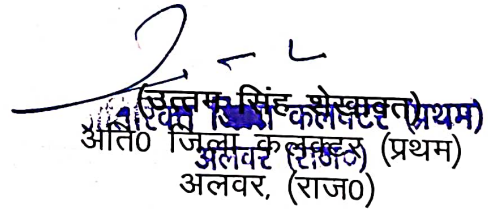 (उत्तम सिंह शेखावत)
अतिरिक्त जिला कलक्टर (प्रथम)
अति0 जिला कलक्टर (प्रथम)
अलवर (राज०)
अलवर, (राज0)